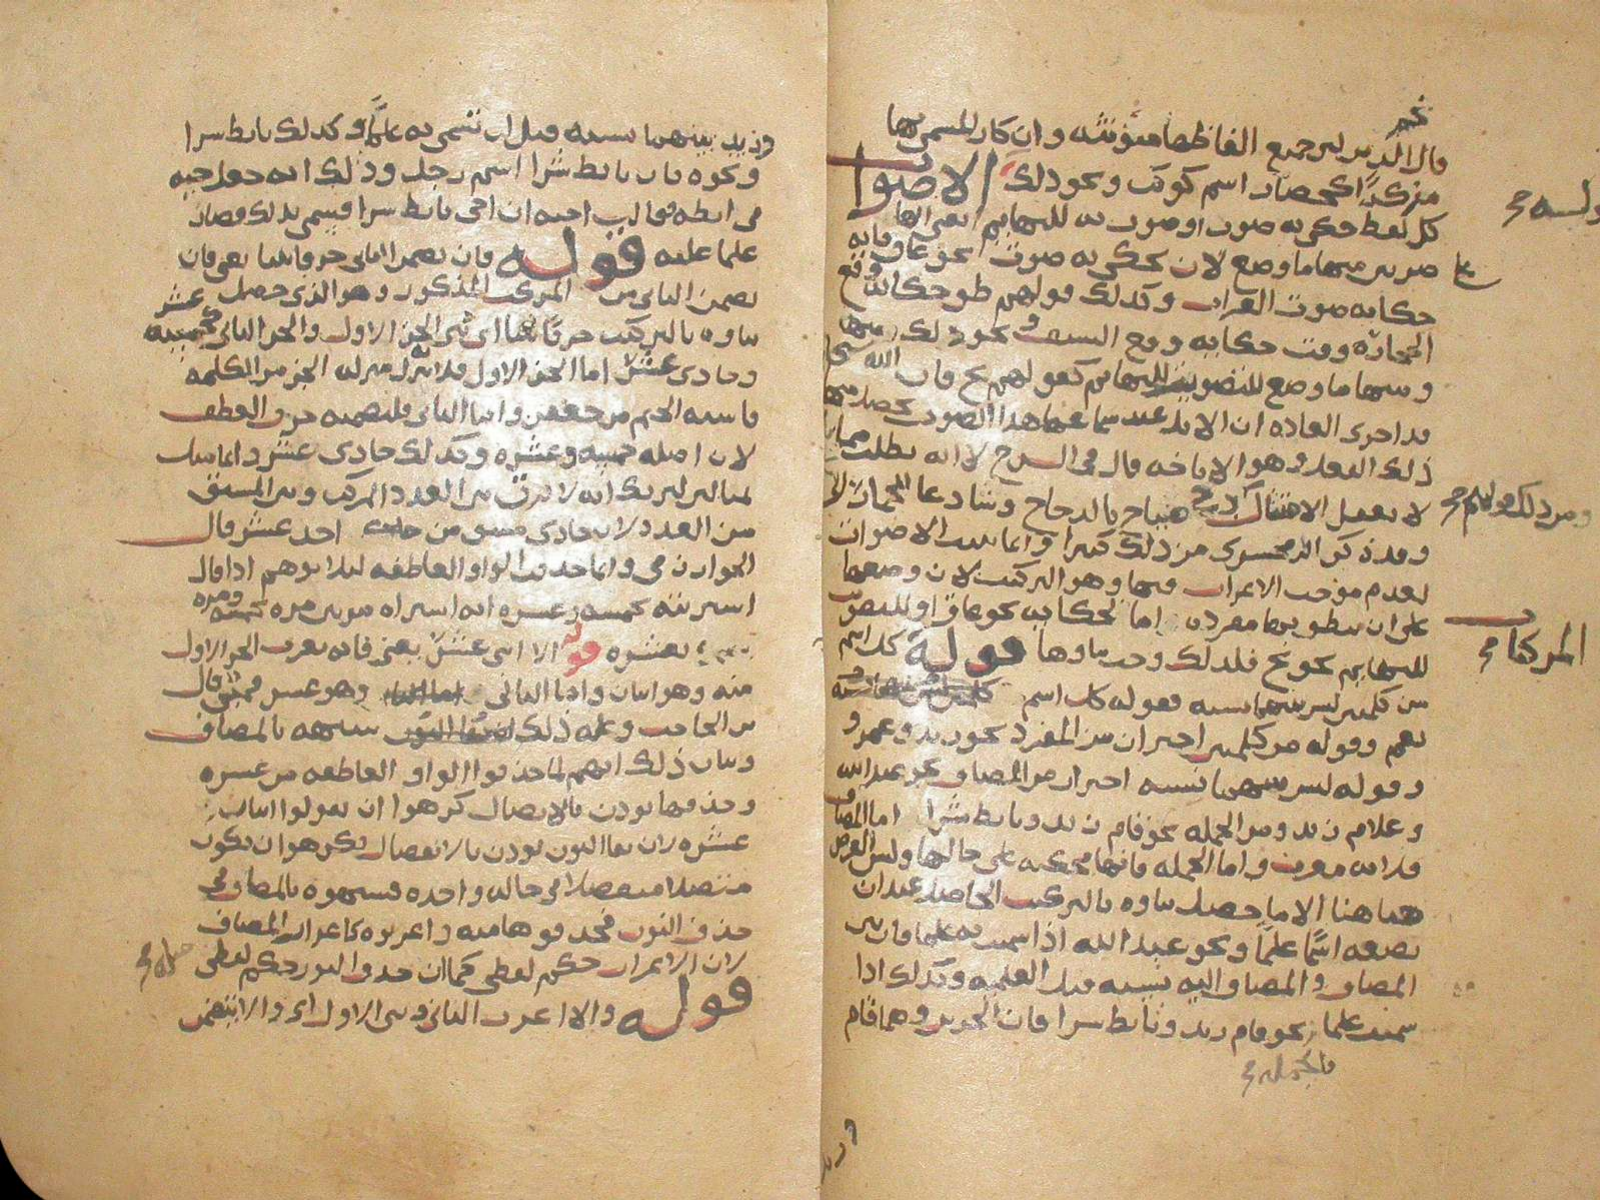 نجم
قال الدين ليس جميع الفاظها مؤنثة وان كان المسمى بها
مذكرا كحضار اسم كوكب ونحو ذلك الاصوات
كل لفظ حكى به صوت او صوت به للبهائم يعنى انها
ضربين منها ما وضع لان يحكى به صوت نحو غاق فانه
حكاية صوت الغراب وكذلك قولهم طق حكاية وقع
الحجارة وقب حكاية وقع السيف ونحو ذلك
ومنها ما وضع للتصويت للبهائم كقولهم نخ فان الله
قد اجرى العادة ان الابل عند سماعها هذا الصوت يحصل منها
ذلك الفعل وهو الاناخة قال فى الشرح لا انه يطلب مما
لا يعقل الامتثال دج صياح بالدجاج وشا دعا الحمار
وقد ذكر الزمخشرى من ذلك كثيرا وانما بنيت الاصوات
لعدم موجب الاعراب فيها وهو التركيب لان وضعها
على ان ينطق بها مفردة اما لحكاية نحو غاق او للتصويت
للبهائم نحو نخ فلذلك وجب بناؤها قوله كل اسم
من كلمتين ليس بينهما نسبة فقوله كل اسم
يعم وقوله من كلمتين احتراز من المفرد نحو زيد وعمرو
وقوله ليس بينهما نسبة احتراز من المضاف نحو عبد الله
وغلام زيد ومن الجملة نحو قام زيد وتأبط شرا اما المضاف
فلانه معرب واما الجملة فانها محكية على حالها وليس الغرض
هاهنا الا ما حصل بناؤه بالتركيب الحاصل عند ان
تضعه اسما علما ونحو عبد الله اذا سميت به علما فان بين
المضاف والمضاف اليه نسبة قبل العلمية وكذلك اذا
سميت علما نحو قام زيد وتأبط شرا فان الجزين وهما قام
ومن ذلك قولهم
المركبات
وزيد بينهما نسبة قبل ان تسمى به علما وكذلك تأبط شرا
ونحوه فان تأبط شرا اسم رجل وذلك انه جعل حية
فى ابطه فقالت اخته ان اخى تأبط شرا فسمى بذلك فصار
علما عليه قوله فان تضمن الثانى حرفا بنيا يعنى فان
تضمن الثانى من المركب المذكور وهو الذى حصل
بناؤه بالتركيب حرفا بنيا اى بنى الجزء الاول والجزء الثانى كخمسة عشر
وحادى عشر اما الجزء الاول فلانه نزل منزلة الجزء من الكلمة
فاشبه الجيم من جعفر واما الثانى فلتضمنه حرف العطف
لان اصله خمسة وعشرة وكذلك حادى عشر وانما
مثالين ليريك انه لا فرق بين العدد المركب وبين المشتق
من العدد لان حادى مشتق من احد عشر قال
الخوارزمى وانما حذفت الواو العاطفة لئلا يوهم اذا قال
اشتريته بخمسة وعشرة انه اشتراه مرتين مرة بخمسة ومرة
بعشرة قوله الا اثنى عشر يعنى فانه يعرب الجزء الاول
منه وهو اثنان واما الثانى وهو عشر فمبنى قال
ابن الحاجب وعلة ذلك شبهه بالمضاف
وبيان ذلك انهم لما حذفوا الواو العاطفة من عشرة
وحذفها يوذن بالاتصال كرهوا ان يقولوا اثنان
عشرة لان بقا النون يوذن بالانفصال فكرهوا ان يكون
متصلا منفصلا فى حالة واحدة فشبهوه بالمضاف فى
حذف النون فحذفوها منه واعربوه كاعراب المضاف
لان الاعراب حكم لفظى كما ان حذف النون حكم لفظى
قوله والا اعرب الثانى وبنى الاول اى والا يتضمن